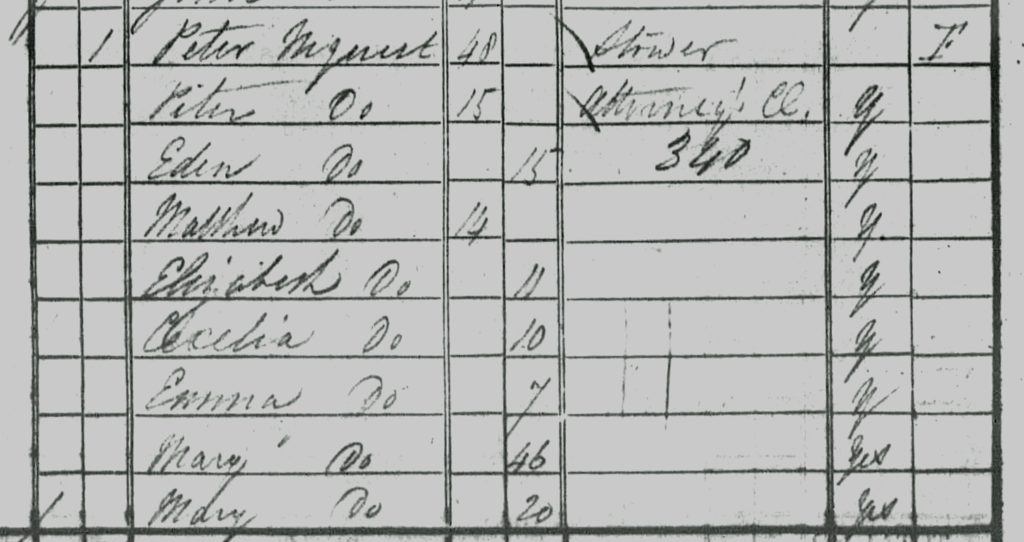 1 Peter Nyquest 48 Stower F
Peter Do 15 Attorney's Cl. Y
Eden Do 15 340 Y
Matthew Do 14 Y
Elizabeth Do 11 Y
Cecelia Do 10 Y
Emma Do 7 Y
Mary Do 46 Yes
1 Mary Do 20 Yes